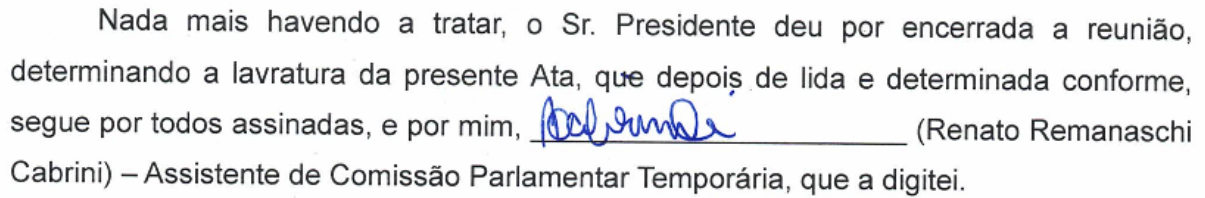 Nada mais havendo a tratar, o Sr. Presidente deu por encerrada a reunião,
determinando a lavratura da presente Ata, que depois de lida e determinada conforme,
segue por todos assinadas, e por mim, (Renato Remanaschi
Cabrini) – Assistente de Comissão Parlamentar Temporária, que a digitei.